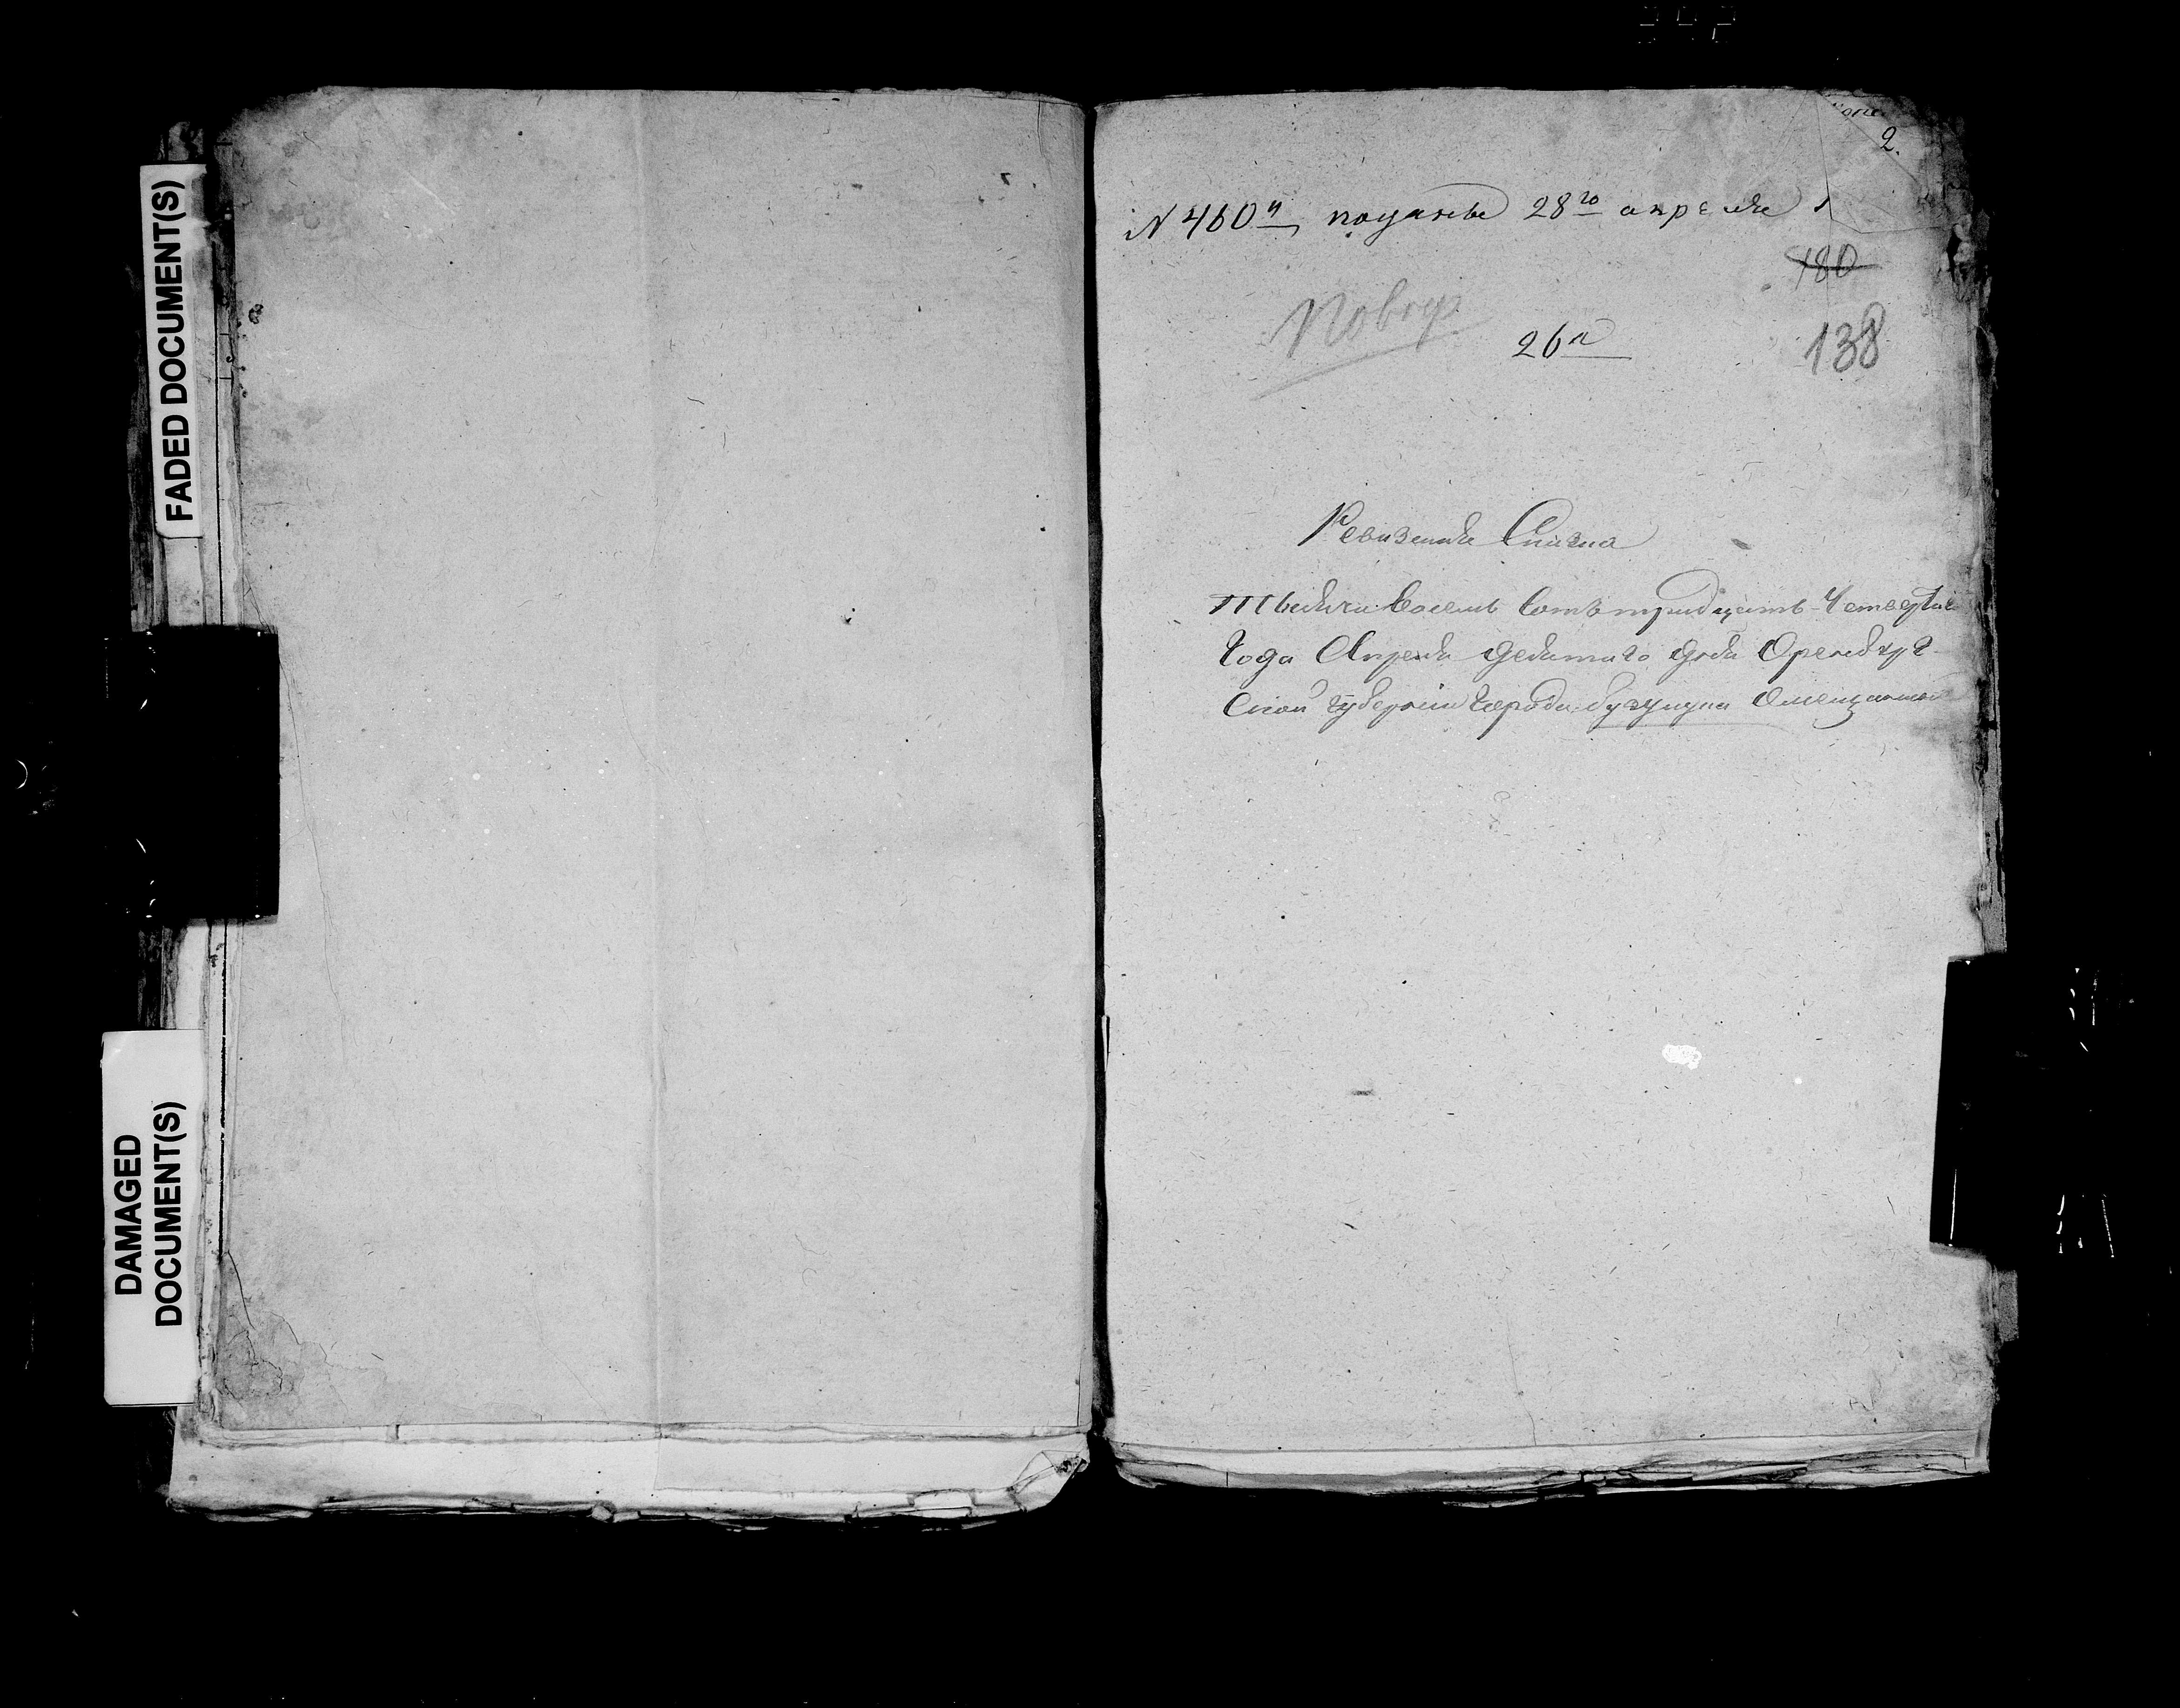 FADED DOCUMENT(S)
DAMAGED
DOCUMENT(S)
2.
N 460й подана 28го апреля
180
26я
138
Ревизская Сказка
Тысяча восемь сотъ тридцать Четвертаго
Года Апреля девятаго дня Оренбург-
ской губернии города Бузулука Омещанахъ